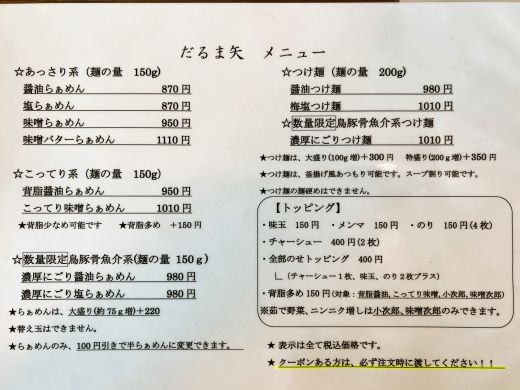 だるま矢　メニュー
☆あっさり系（麺の量　150g)
醤油らぁめん　870 円
塩らぁめん　870 円
味噌らぁめん　950 円
味噌バターらぁめん　1110 円
☆こってり系（麺の量　150g)
背脂醤油らぁめん　950 円
こってり味噌らぁめん　1010 円
★背脂少なめ可能です　★背脂多め　+150 円
☆数量限定鳥豚骨魚介系(麺の量 150ｇ)
濃厚にごり醤油らぁめん　980 円
濃厚にごり塩らぁめん　980 円
★らぁめんは、大盛り(約 75ｇ増)＋220
★替え玉はできません。
★らぁめんのみ、100 円引きで半らぁめんに変更できます。
☆つけ麺（麺の量　200g)
醤油つけ麺　980 円
梅塩つけ麺　1010 円
☆数量限定鳥豚骨魚介系つけ麺
濃厚にごりつけ麺　1010 円
★つけ麺は、大盛り(100g 増)＋300 円　特盛り(200ｇ増)＋350 円
★つけ麺は、釜揚げ風あつもり可能です。スープ割り可能です。
★つけ麺の麺硬めはできません。
【トッピング】
・味玉　150 円　・メンマ　150 円　・のり　150 円(４枚)
・チャーシュー　400 円(２枚)
・全部のせトッピング　400 円
∟（チャーシュー１枚、味玉、のり２枚プラス）
・背脂多め 150 円 (対象：背脂醤油、こってり味噌、小次郎、味噌次郎)
※茹で野菜、ニンニク増しは小次郎、味噌次郎のみできます。
★ 表示は全て税込価格です。
★ クーポンある方は、必ず注文時に渡してください！！